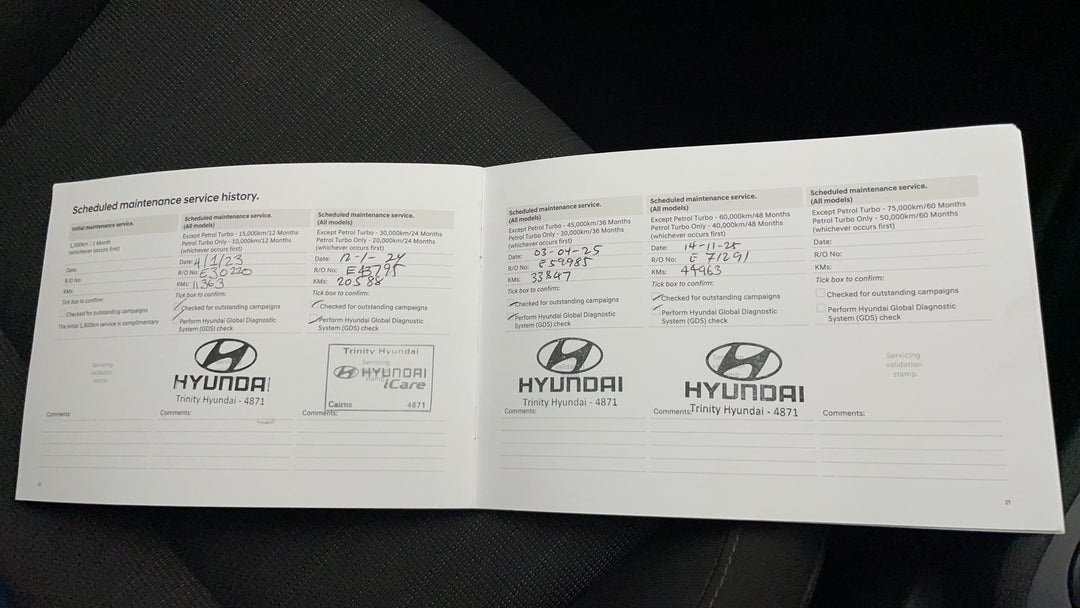 Scheduled maintenance service history.
Initial maintenance service.
1,500km / 1 Month
(whichever occurs first)
Date:
R/O No:
KMs:
Tick box to confirm:
Checked for outstanding campaigns
The initial 1,500km service is complimentary
Servicing
validation
stamp
Comments:
Scheduled maintenance service.
(All models)
Except Petrol Turbo - 15,000km/12 Months
Petrol Turbo Only - 10,000km/12 Months
(whichever occurs first)
Date: 9/1/23
R/O No: E30220
KMs: 11363
Tick box to confirm:
Checked for outstanding campaigns
Perform Hyundai Global Diagnostic
System (GDS) check
HYUNDAI
Trinity Hyundai - 4871
Comments:
Scheduled maintenance service.
(All models)
Except Petrol Turbo - 30,000km/24 Months
Petrol Turbo Only - 20,000km/24 Months
(whichever occurs first)
Date: 12-1-24
R/O No: E43795
KMs: 20588
Tick box to confirm:
Checked for outstanding campaigns
Perform Hyundai Global Diagnostic
System (GDS) check
Trinity Hyundai
Servicing
HYUNDAI
stamp
iCare
Cairns 4871
Comments:
Scheduled maintenance service.
(All models)
Except Petrol Turbo - 45,000km/36 Months
Petrol Turbo Only - 30,000km/36 Months
(whichever occurs first)
Date: 03-04-25
R/O No: E59985
KMs: 33847
Tick box to confirm:
Checked for outstanding campaigns
Perform Hyundai Global Diagnostic
System (GDS) check
HYUNDAI
Trinity Hyundai - 4871
Comments:
Scheduled maintenance service.
(All models)
Except Petrol Turbo - 60,000km/48 Months
Petrol Turbo Only - 40,000km/48 Months
(whichever occurs first)
Date: 14-11-25
R/O No: E 71291
KMs: 44963
Tick box to confirm:
Checked for outstanding campaigns
Perform Hyundai Global Diagnostic
System (GDS) check
HYUNDAI
Trinity Hyundai - 4871
Comments:
Scheduled maintenance service.
(All models)
Except Petrol Turbo - 75,000km/60 Months
Petrol Turbo Only - 50,000km/60 Months
(whichever occurs first)
Date:
R/O No:
KMs:
Tick box to confirm:
Checked for outstanding campaigns
Perform Hyundai Global Diagnostic
System (GDS) check
Servicing
validation
stamp
Comments:
21